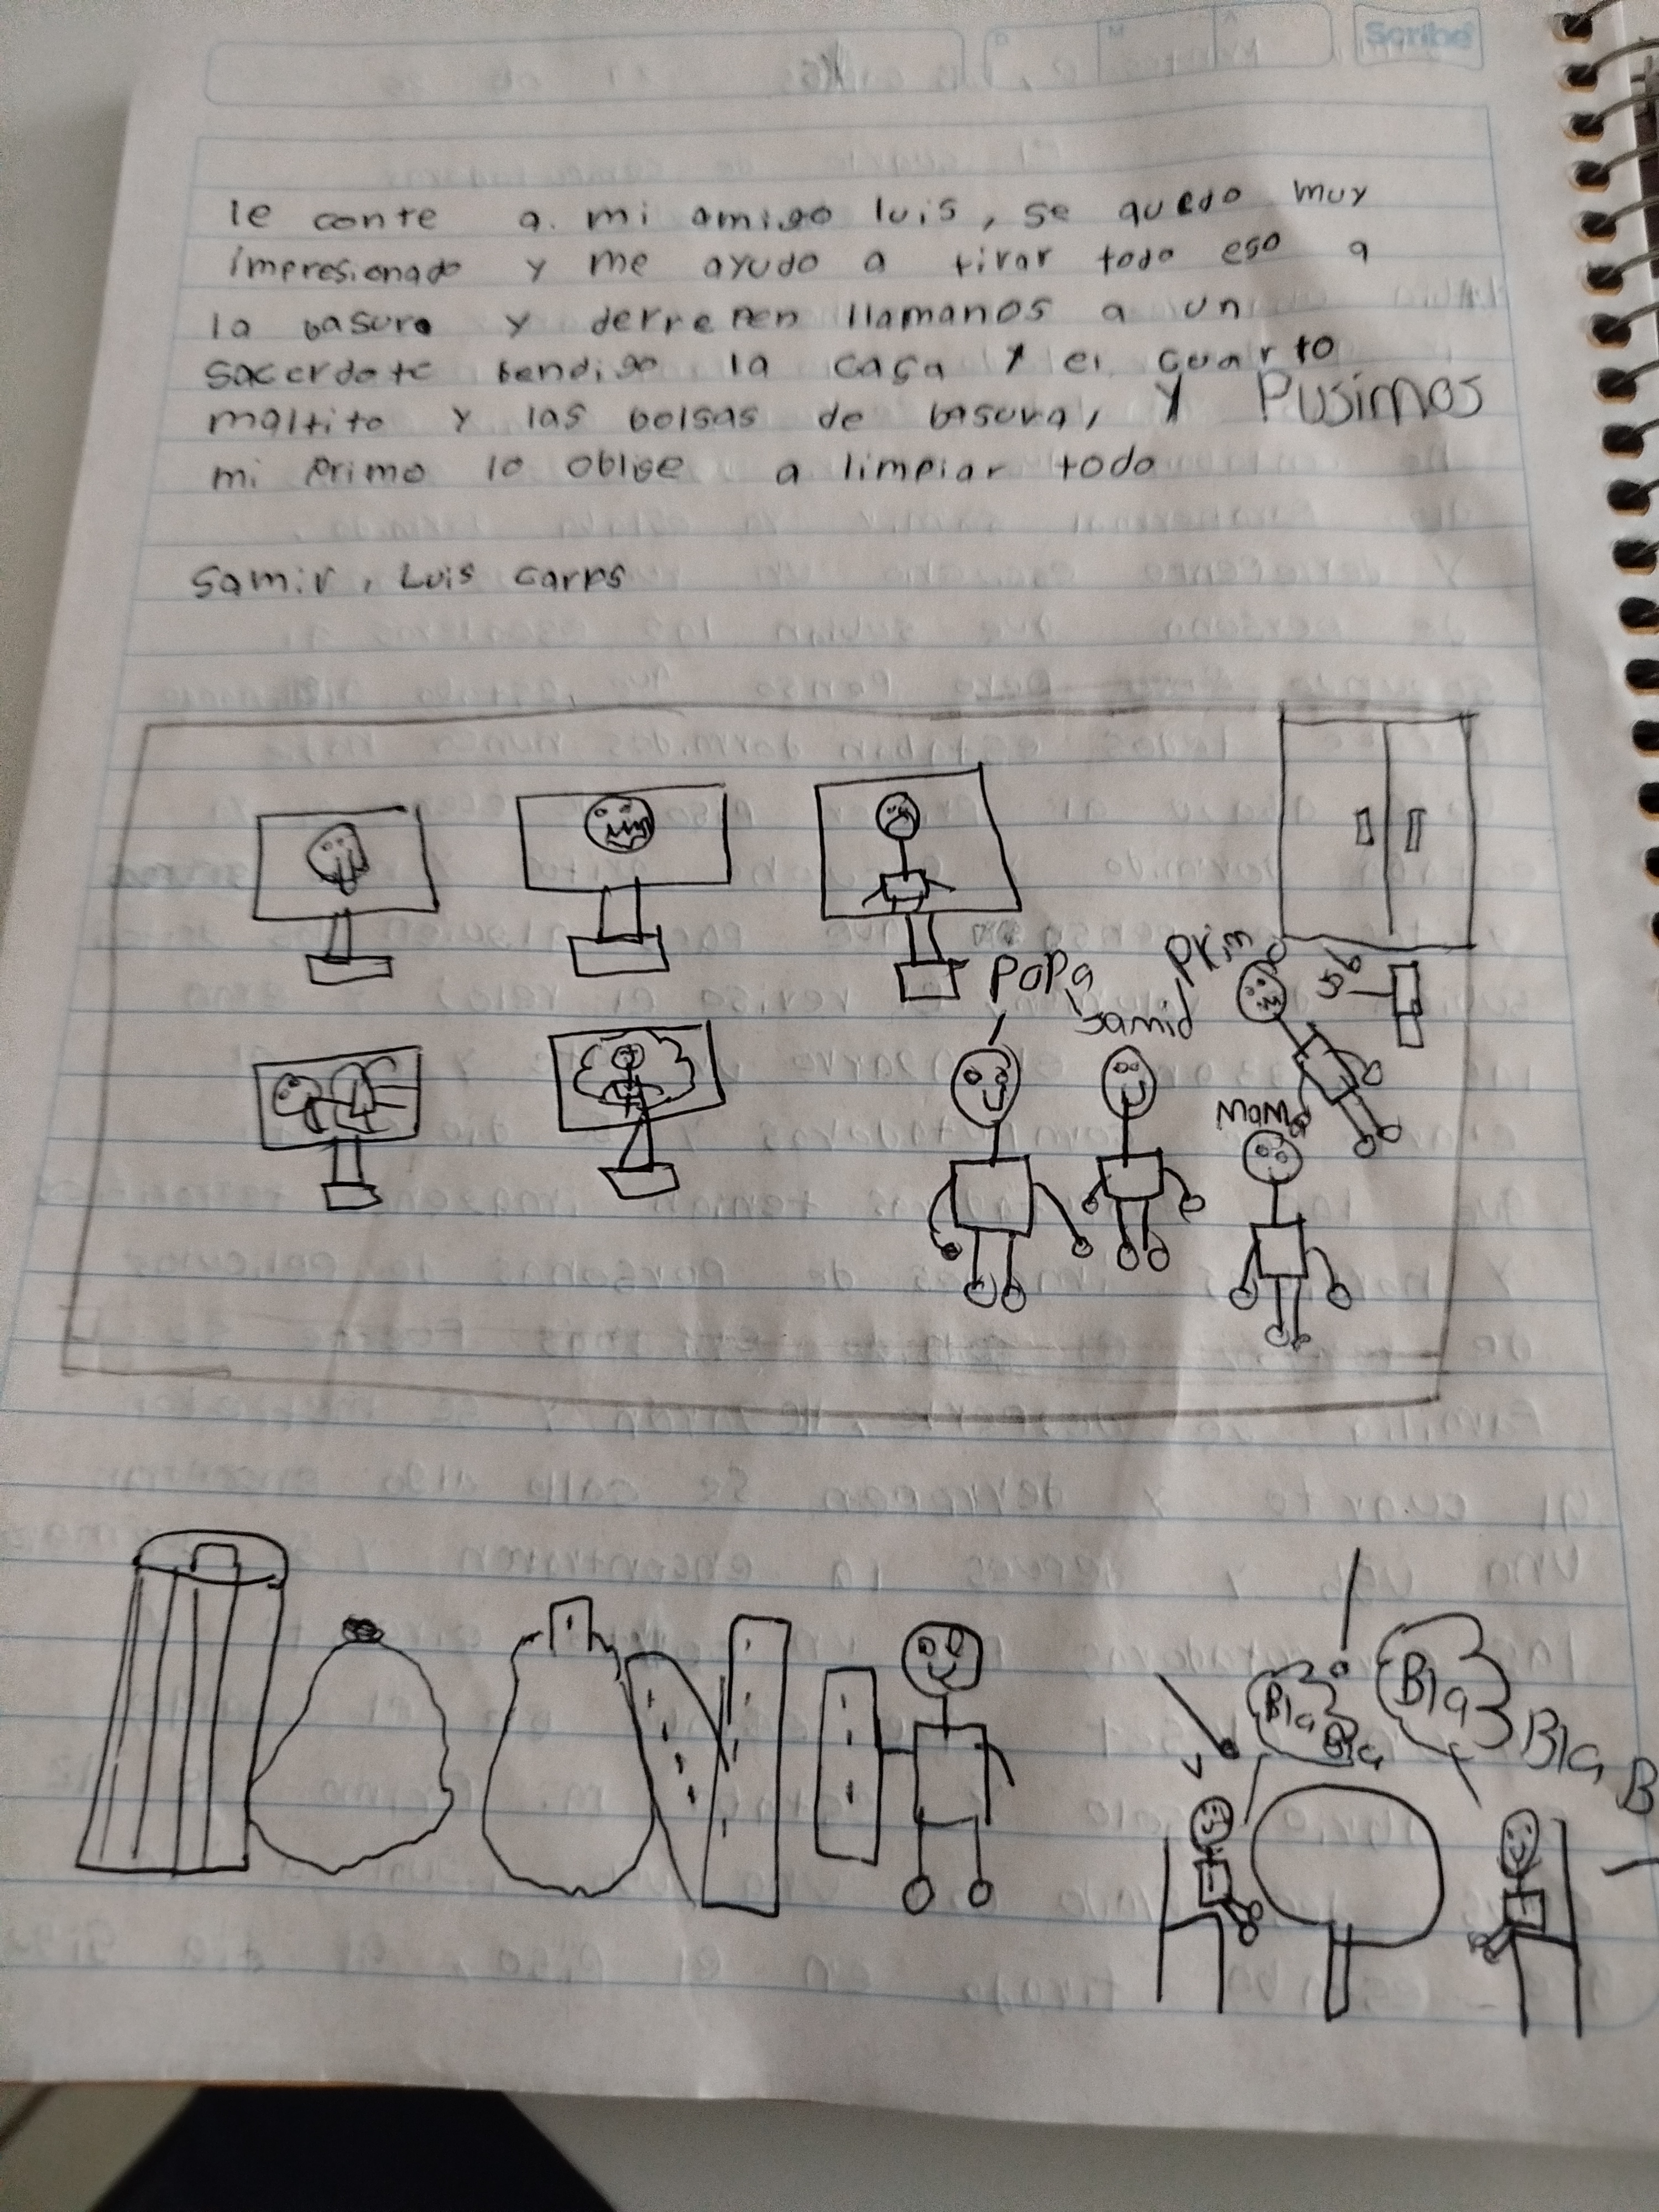 Scribe
le conte a mi amigo luis, se quedo muy
impresionado y me ayudo a tirar todo eso a
la basura y derrepen llamanos a un
sacerdote bendigo la casa y el cuarto
maltito y las bolsas de basura, y Pusimos
mi primo lo oblige a limpiar todo
Samir, Luis
Papa
Samid
Prim
usb
Mama
Bla
Bla
Bla
Bla
B